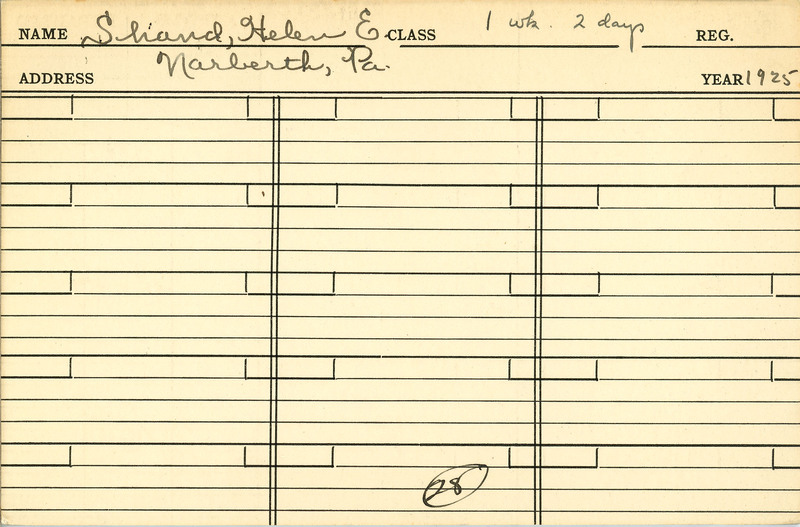 NAME Shand, Helen E. CLASS 1 wk. 2 days REG.
ADDRESS Narberth, Pa. YEAR 1925
28